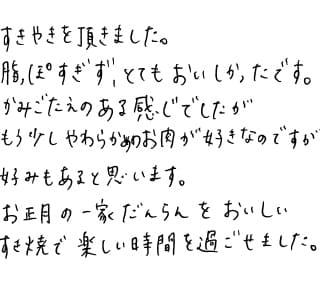 すきやきを頂きました。
脂っぽすぎず、とてもおいしかったです。
かみごたえのある感じでしたが
もう少しやわらかめのお肉が好きなのですが
好みもあると思います。
お正月の一家だんらんをおいしい
すき焼で楽しい時間を過ごせました。